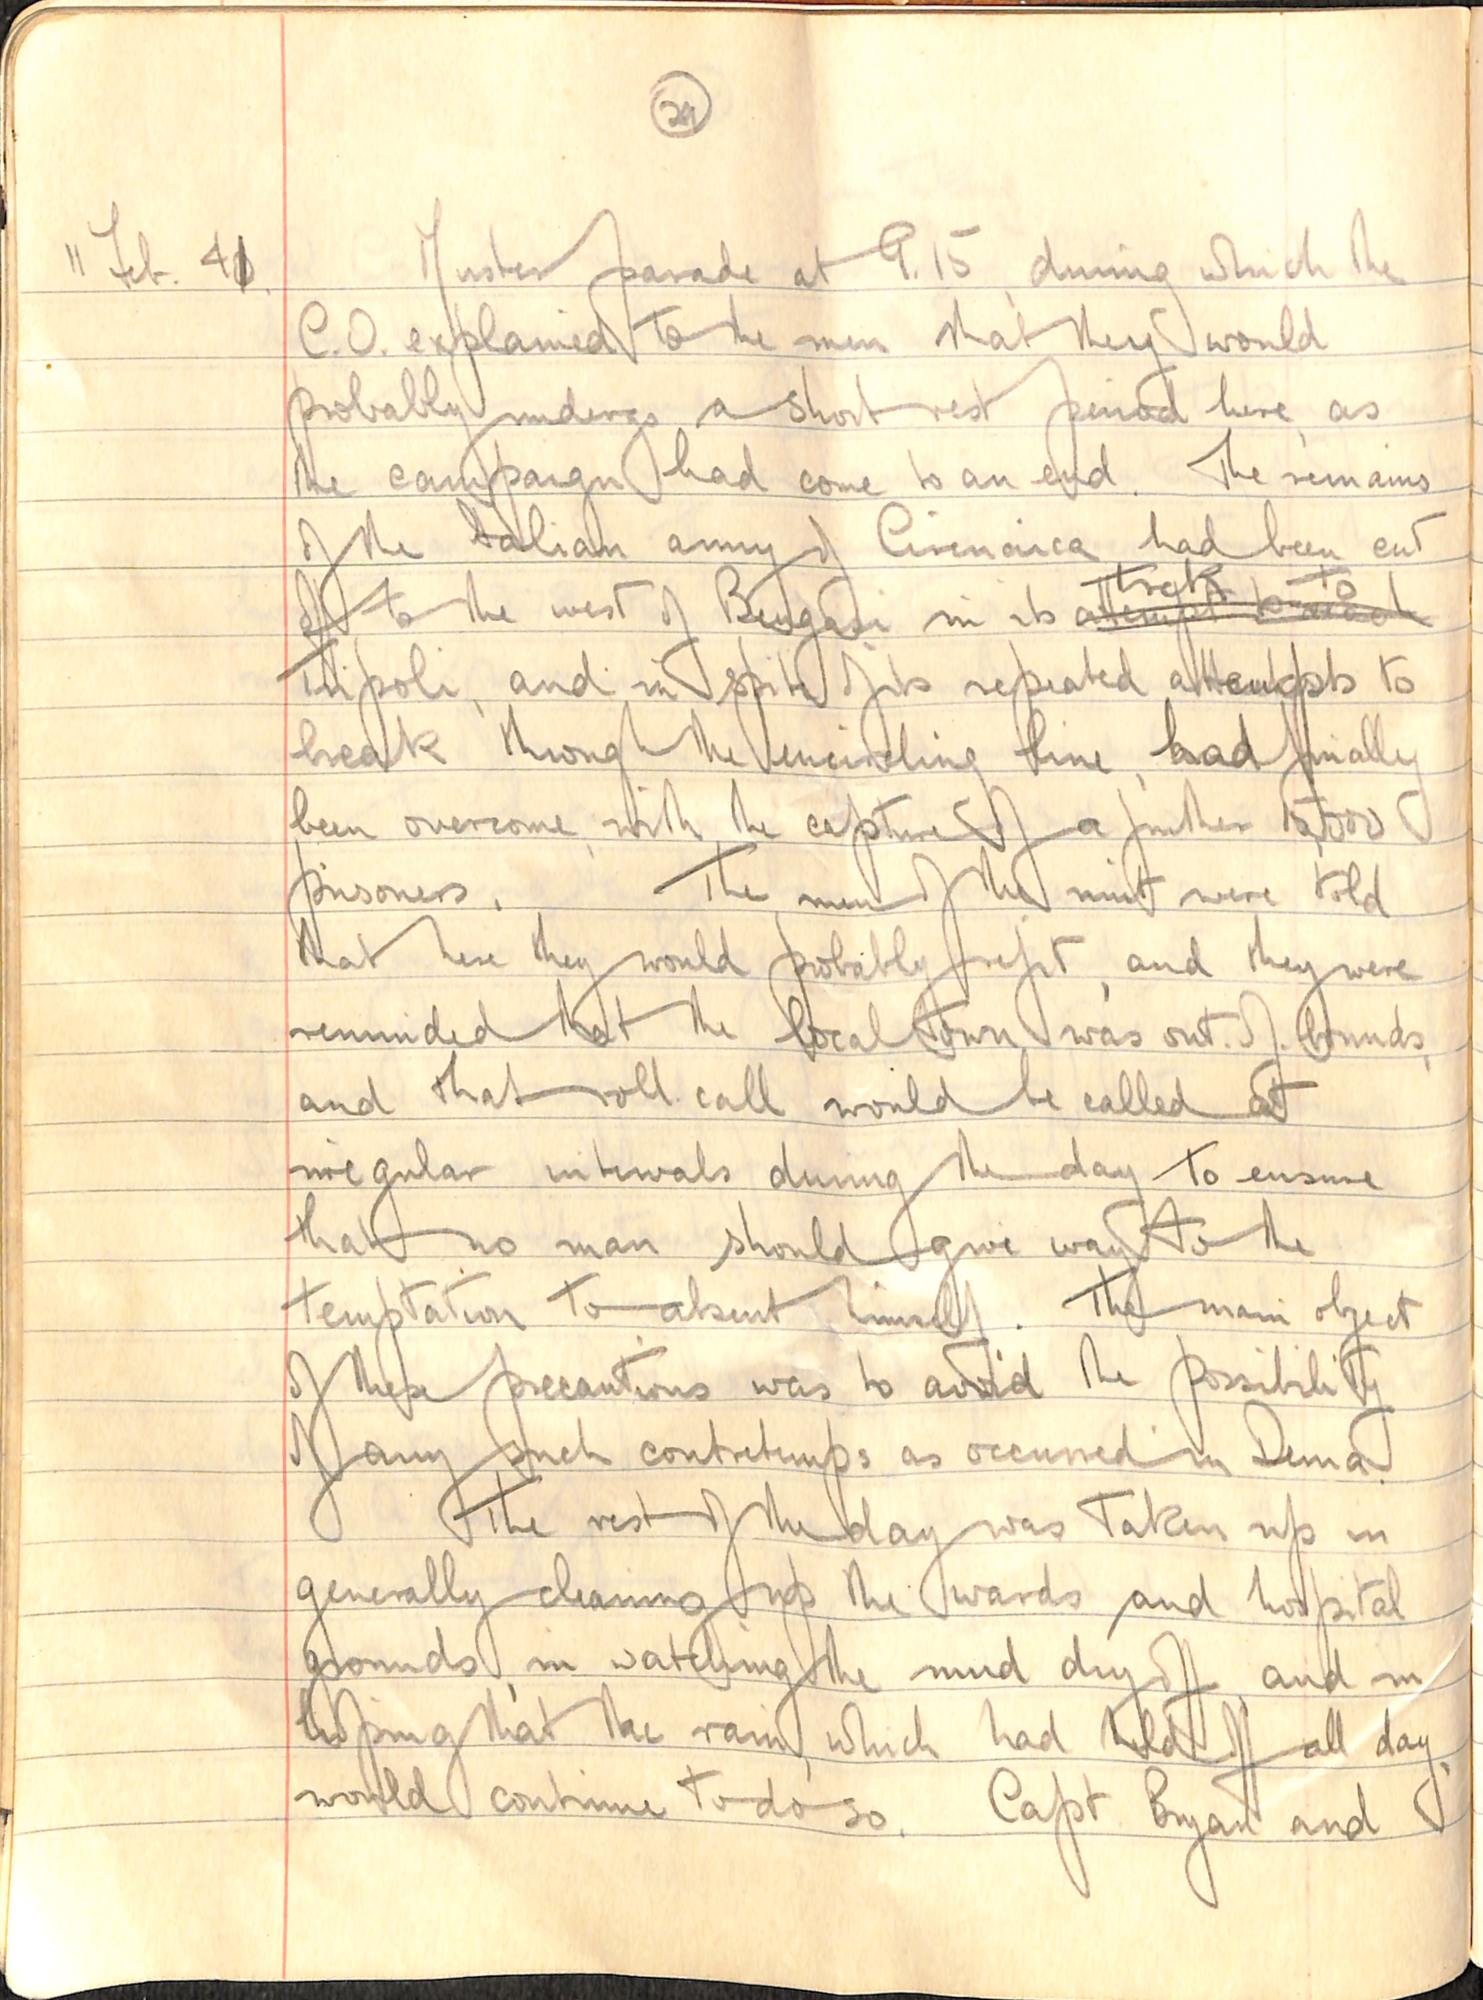 11 Feb. 41.
Muster parade at 9.15, during which the
C.O. explained to the men that they would
probably undergo a short rest period here, as
the campaign had come to an end. The remains
of the Italian army of Cirenaica had been cut
off to the west of Bengasi in its trek to
Tripoli, and in spite of its repeated attempts to
break through the encircling line, had finally
been overcome, with the capture of a further 15,000
prisoners. The men of the unit were told
that here they would probably refit, and they were
reminded that the local town was out of bounds,
and that roll call would be called at
irregular intervals during the day to ensure
that no man should give way to the
temptation to absent himself. The main object
of these precautions was to avoid the possibility
of any such contretemps as occurred in Derna.
The rest of the day was taken up in
generally cleaning up the wards and hospital
grounds, in watching the mud dry off and in
hoping that the rain, which had held off all day,
would continue to do so. Capt Bryan and I